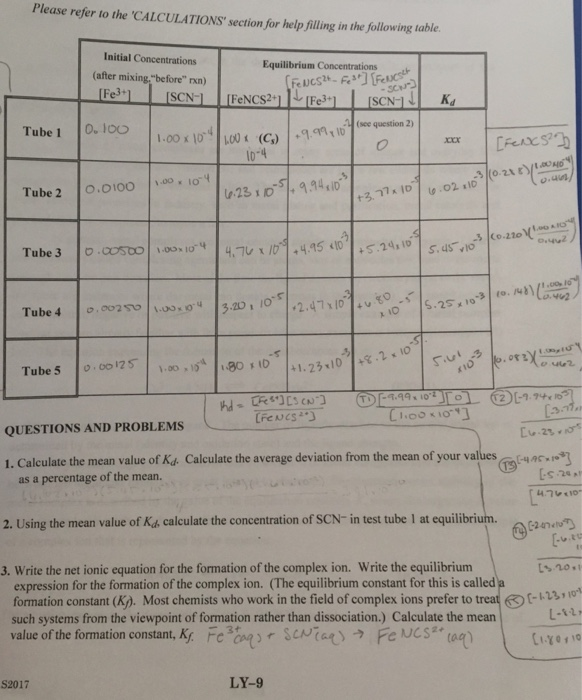 Please refer to the 'CALCULATIONS' section for help filling in the following table.
Initial Concentrations
(after mixing, "before" rxn)
Equilibrium Concentrations
[FeNCS²⁺ - Fe³⁺] [FeNCS²⁺ - SCN⁻]
[Fe3+] [SCN-] [FeNCS2+] ↓ [Fe3+] [SCN-] ↓ Kd
Tube 1 0.100 1.00 x 10⁻⁴ 1.00 x 10⁻⁴ (C₀) -9.99 x 10⁻² (see question 2) 0 xxx [FeNCS²⁺]
Tube 2 0.0100 1.00 x 10⁻⁴ 6.23 x 10⁻⁵ -9.94 x 10⁻³ +3.77 x 10⁻⁵ 6.02 x 10⁻³
Tube 3 0.00500 1.00 x 10⁻⁴ 4.76 x 10⁻⁵ -4.95 x 10⁻³ +5.24 x 10⁻⁵ 5.45 x 10⁻³ (0.220)
Tube 4 0.00250 1.00 x 10⁻⁴ 3.20 x 10⁻⁵ -2.47 x 10⁻³ +6.80 x 10⁻⁵ 5.25 x 10⁻³ (0.148)
Tube 5 0.00125 1.00 x 10⁻⁴ 1.80 x 10⁻⁵ +1.23 x 10⁻³ +8.2 x 10⁻⁵ 5.61 x 10⁻³ (0.083)
Kd = [Fe³⁺][SCN⁻] / [FeNCS²⁺] T1 [-9.99 x 10⁻²][0] / [1.00 x 10⁻⁴] T2
QUESTIONS AND PROBLEMS
1. Calculate the mean value of Kd. Calculate the average deviation from the mean of your values
as a percentage of the mean.
2. Using the mean value of Kd, calculate the concentration of SCN- in test tube 1 at equilibrium.
3. Write the net ionic equation for the formation of the complex ion. Write the equilibrium
expression for the formation of the complex ion. (The equilibrium constant for this is called a
formation constant (Kf). Most chemists who work in the field of complex ions prefer to treat
such systems from the viewpoint of formation rather than dissociation.) Calculate the mean
value of the formation constant, Kf. Fe³⁺(aq) + SCN⁻(aq) → FeNCS²⁺(aq)
S2017 LY-9